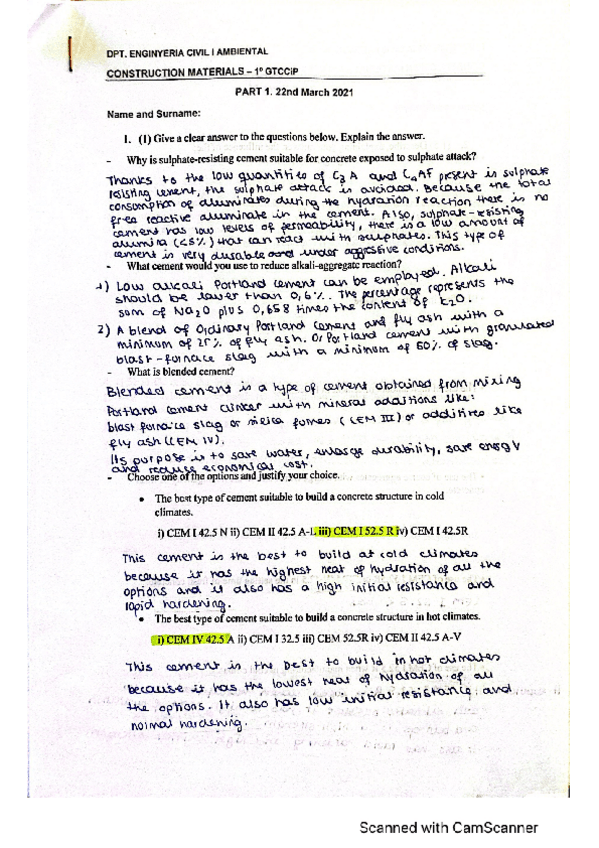 DPT. ENGINYERIA CIVIL I AMBIENTAL
CONSTRUCTION MATERIALS – 1º GTCCiP
PART 1. 22nd March 2021
Name and Surname:
1. (1) Give a clear answer to the questions below. Explain the answer.
- Why is sulphate-resisting cement suitable for concrete exposed to sulphate attack?
Thanks to the low quantities of C3A and C4AF present is sulphate
resisting cement, the sulphate attack is avoided. Because the total
consumption of aluminates during the hydration reaction there is no
free reactive aluminate in the cement. Also, sulphate-resisting
cement has low levels of permeability, there is a low amount of
alumina (<5%) that can react with sulphates. This type of
cement is very durable and under aggressive conditions.
- What cement would you use to reduce alkali-aggregate reaction?
1) Low alkali Portland cement can be employed. Alkali
should be lower than 0,6%. The percentage represents the
sum of Na2O plus 0,658 times the content of K2O.
2) A blend of Ordinary Portland Cement and fly ash with a
minimum of 25% of fly ash. Or Portland cement with granulated
blast-furnace slag with a minimum of 60% of slag.
- What is blended cement?
Blended cement is a type of cement obtained from mixing
Portland cement clinker with mineral additions like:
blast furnace slag or silica fumes (CEM III) or additives like
fly ash (CEM IV).
Its purpose is to save water, enlarge durability, save energy
and reduce economical cost.
- Choose one of the options and justify your choice.
• The best type of cement suitable to build a concrete structure in cold
climates.
i) CEM I 42.5 N ii) CEM II 42.5 A-L iii) CEM I 52.5 R iv) CEM I 42.5R
This cement is the best to build at cold climates
because it has the highest heat of hydration of all the
options and it also has a high initial resistance and
rapid hardening.
• The best type of cement suitable to build a concrete structure in hot climates.
i) CEM IV 42.5 A ii) CEM I 32.5 iii) CEM 52.5R iv) CEM II 42.5 A-V
This cement is the best to build in hot climates
because it has the lowest heat of hydration of all
the options. It also has low initial resistance and
normal hardening.
Scanned with CamScanner